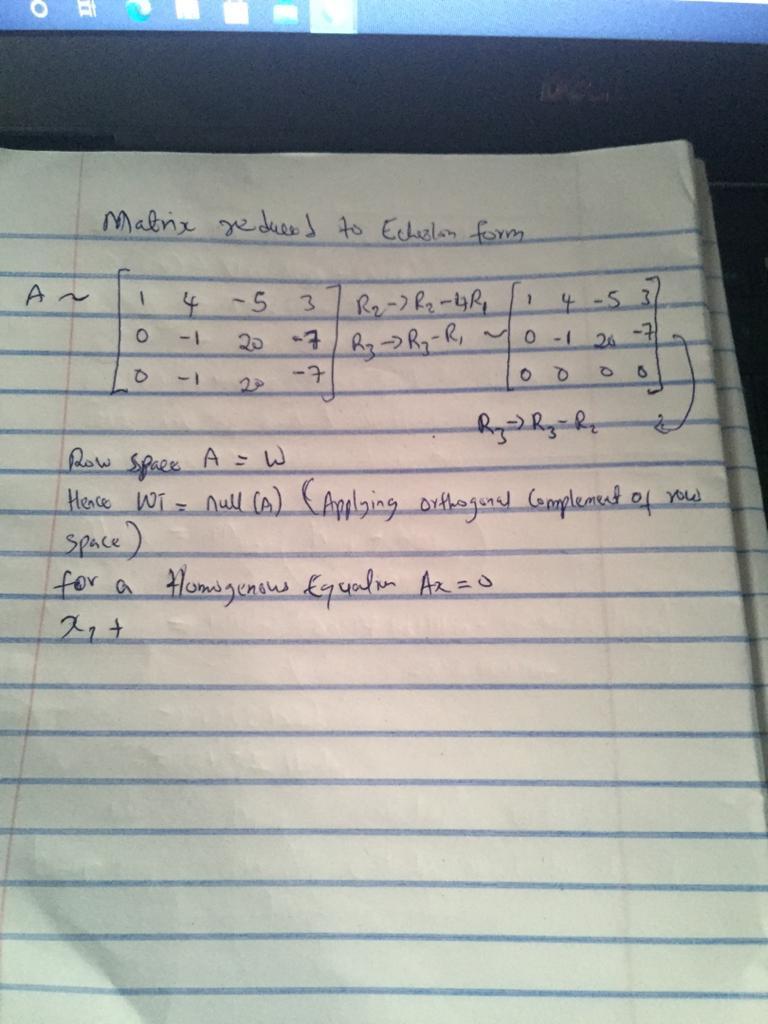 Matrix reduced to Echelon form
A ~ [ 1 4 -5 3 ] R₂->R₂-4R₁ [ 1 4 -5 3 ]
[ 0 -1 20 -7 ] R₃->R₃-R₁ ~ [ 0 -1 20 -7 ]
[ 0 -1 20 -7 ] [ 0 0 0 0 ]
R₃->R₃-R₂
Row space A = W
Hence W⊥ = null (A) (Applying orthogonal Complement of row
space)
for a Homogenous Equation Ax=0
x₁ +